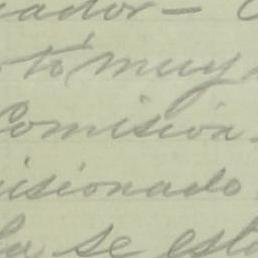 ador – C
tó muy
Comisión.
isionado
la se esta